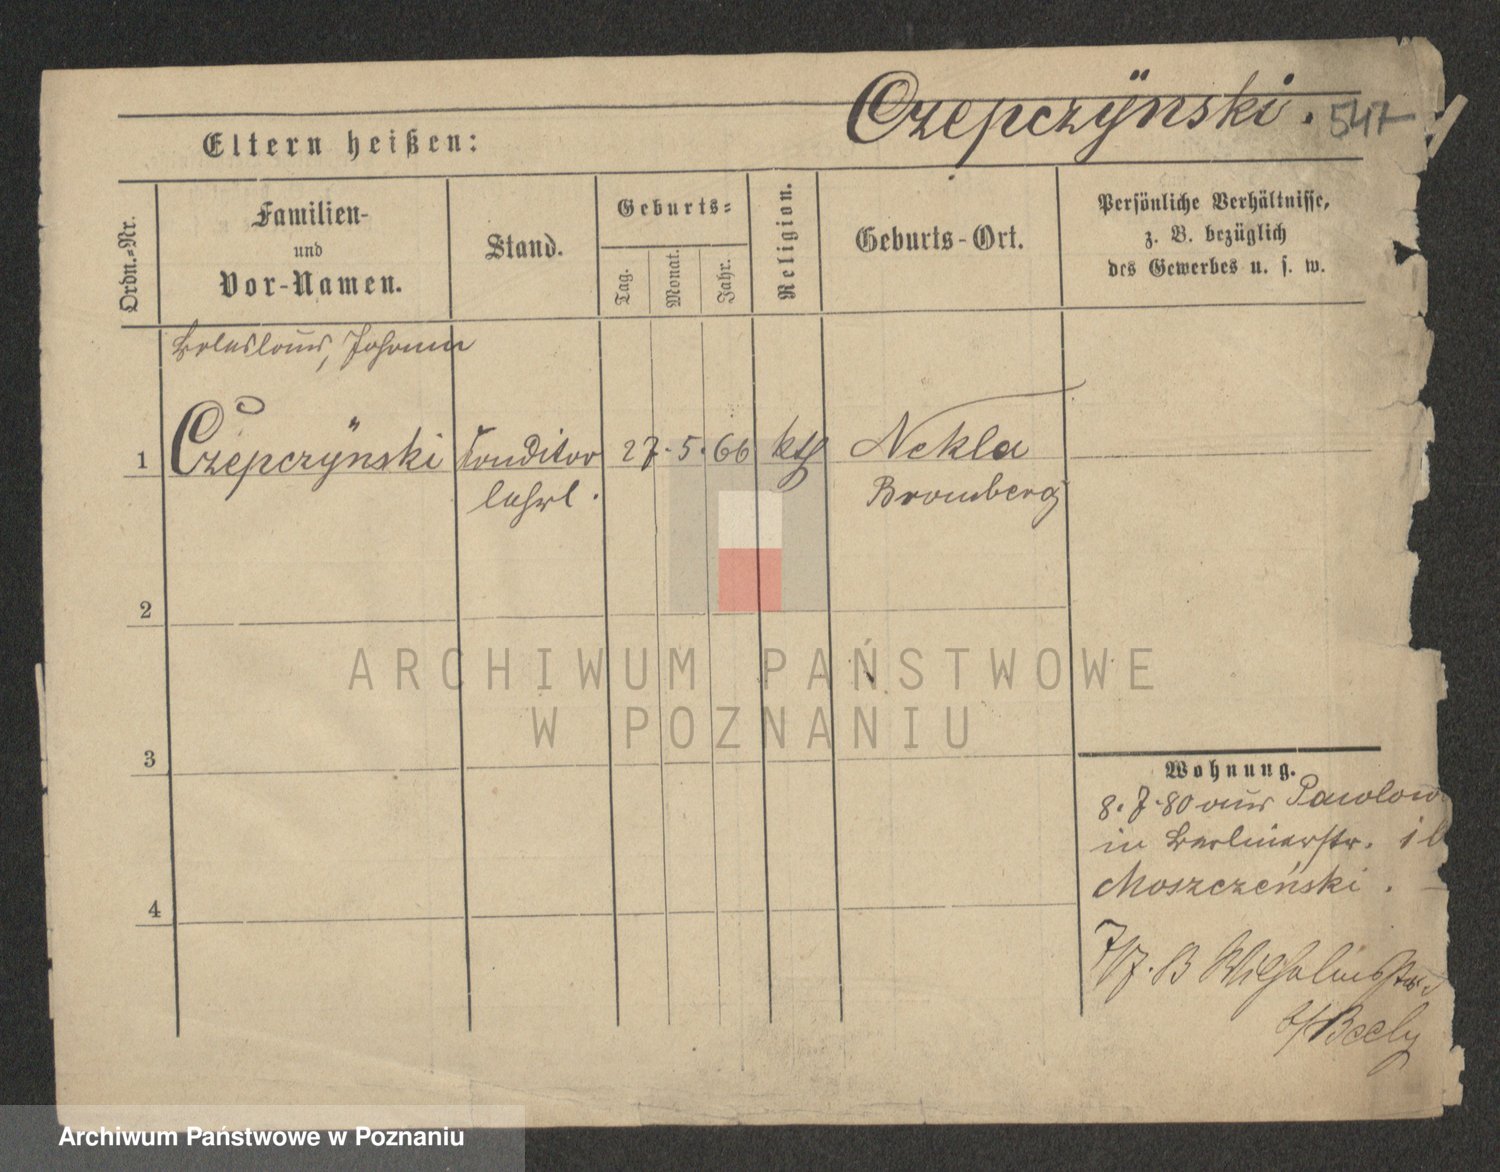 Czepczÿnski. 547
Eltern heißen:
Ordn.=Nr.
Familien-
und
Vor-Namen.
Stand.
Geburts=
Tag.
Monat.
Jahr.
Religion.
Geburts-Ort.
Persönliche Verhältnisse,
z. B. bezüglich
des Gewerbes u. s. w.
Boleslaus, Johann
1 Czepczÿnski Conditor 27. 5. 66 kth Nekla
lehrl. Bromberg
2
3
4
Wohnung.
8. 7. 80 aus Pawlow
in Berlinerstr.
Moszczeński.
Wilhelmstr.
b/ Beely
ARCHIWUM PAŃSTWOWE
W POZNANIU
Archiwum Państwowe w Poznaniu